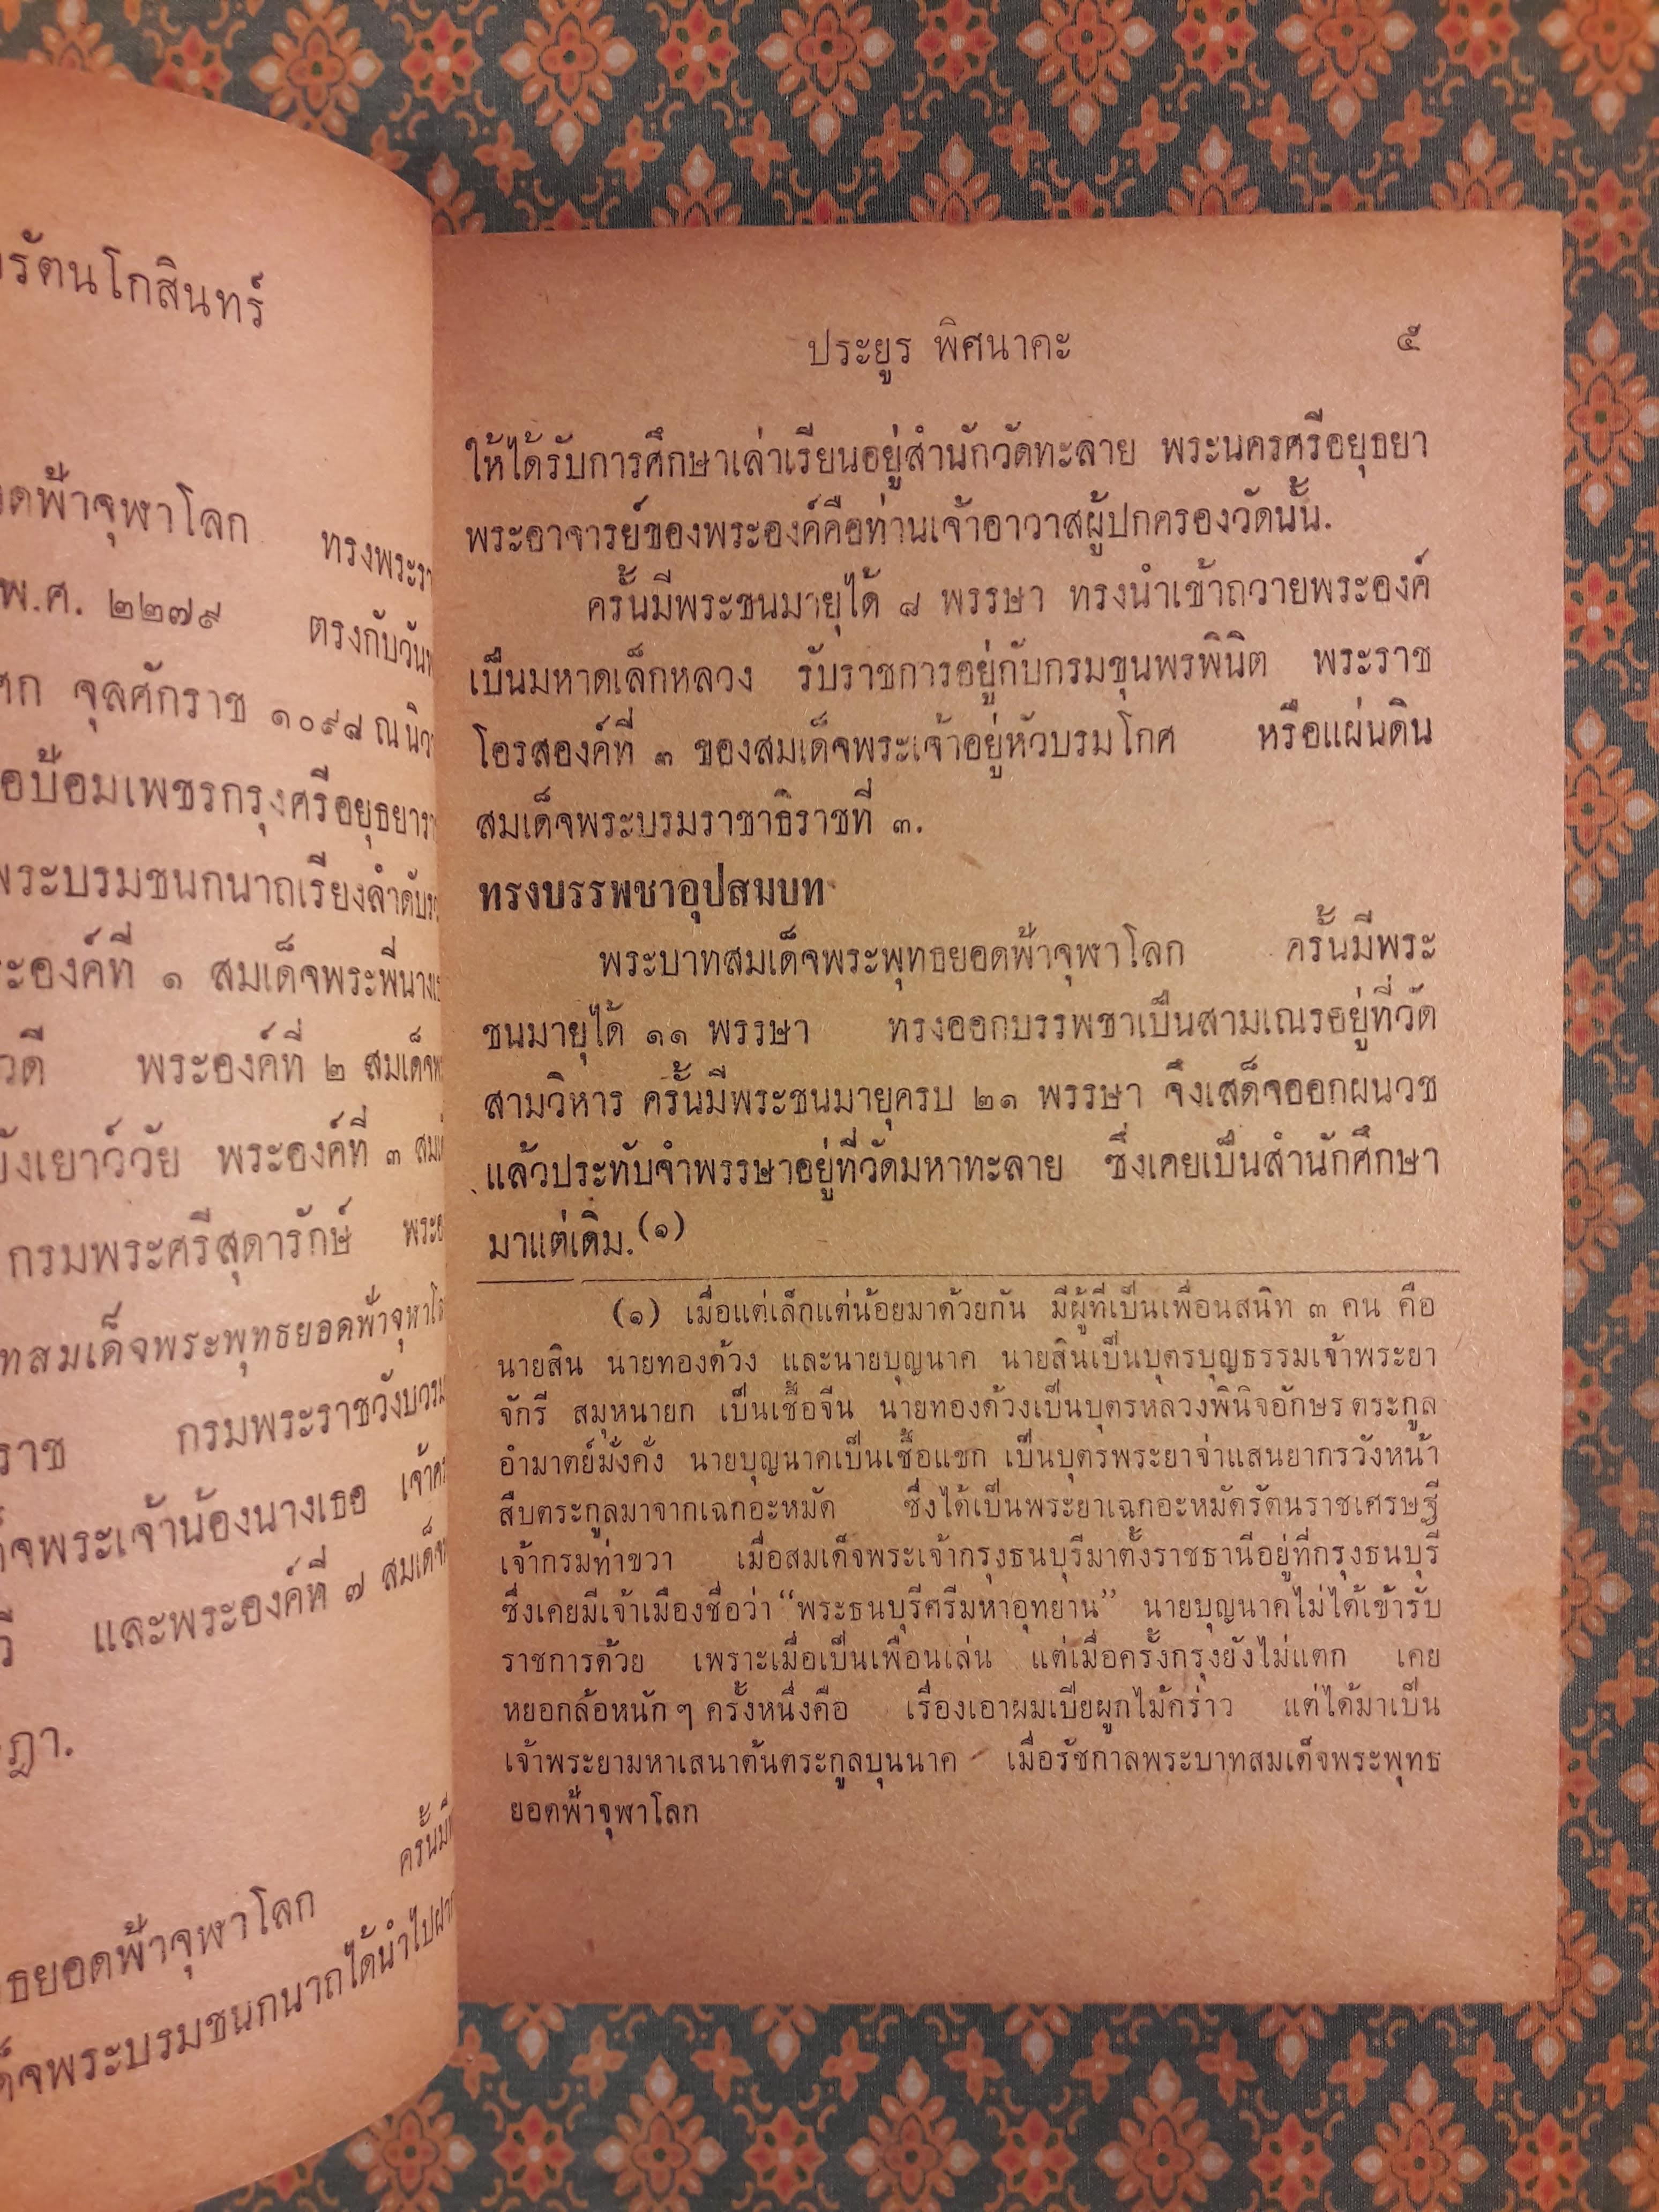 รัตนโกสินทร์
ยอดฟ้าจุฬาโลก ทรงพระรา
พ.ศ. ๒๒๗๙ ตรงกับวัน
ศก จุลศักราช ๑๐๙๘ ณ นิว
อป้อมเพชรกรุงศรีอยุธยารา
พระบรมชนกนาถเรียงลำดับ
ะองค์ที่ ๑ สมเด็จพระพี่นางเ
วดี พระองค์ที่ ๒ สมเด็จพ
ยังเยาว์วัย พระองค์ที่ ๓ สมเ
กรมพระศรีสุดารักษ์ พระอ
ทสมเด็จพระพุทธยอดฟ้าจุฬาโล
ราช กรมพระราชวังบวรม
็จพระเจ้าน้องนางเธอ เจ้าค
รี และพระองค์ที่ ๗ สมเด็จพ
ษฎา.
ธยอดฟ้าจุฬาโลก ครั้นมี
ด็จพระบรมชนกนาถได้นำไปฝาก
ประยูร พิศนาคะ ๕
ให้ได้รับการศึกษาเล่าเรียนอยู่สำนักวัดทะลาย พระนครศรีอยุธยา
พระอาจารย์ของพระองค์คือท่านเจ้าอาวาสผู้ปกครองวัดนั้น.
ครั้นมีพระชนมายุได้ ๘ พรรษา ทรงนำเข้าถวายพระองค์
เป็นมหาดเล็กหลวง รับราชการอยู่กับกรมขุนพรพินิต พระราช
โอรสองค์ที่ ๓ ของสมเด็จพระเจ้าอยู่หัวบรมโกศ หรือแผ่นดิน
สมเด็จพระบรมราชาธิราชที่ ๓.
ทรงบรรพชาอุปสมบท
พระบาทสมเด็จพระพุทธยอดฟ้าจุฬาโลก ครั้นมีพระ
ชนมายุได้ ๑๑ พรรษา ทรงออกบรรพชาเป็นสามเณรอยู่ที่วัด
สามวิหาร ครั้นมีพระชนมายุครบ ๒๑ พรรษา จึงเสด็จออกผนวช
แล้วประทับจำพรรษาอยู่ที่วัดมหาทะลาย ซึ่งเคยเป็นสำนักศึกษา
มาแต่เดิม.(๑)
(๑) เมื่อแต่เล็กแต่น้อยมาด้วยกัน มีผู้ที่เป็นเพื่อนสนิท ๓ คน คือ
นายสิน นายทองด้วง และนายบุญนาค นายสินเป็นบุตรบุญธรรมเจ้าพระยา
จักรี สมุหนายก เป็นเชื้อจีน นายทองด้วงเป็นบุตรหลวงพินิจอักษร ตระกูล
อำมาตย์มั่งคั่ง นายบุญนาคเป็นเชื้อแขก เป็นบุตรพระยาจ่าแสนยากรวังหน้า
สืบตระกูลมาจากเฉกอะหมัด ซึ่งได้เป็นพระยาเฉกอะหมัดรัตนราชเศรษฐี
เจ้ากรมท่าขวา เมื่อสมเด็จพระเจ้ากรุงธนบุรีมาตั้งราชธานีอยู่ที่กรุงธนบุรี
ซึ่งเคยมีเจ้าเมืองชื่อว่า “พระธนบุรีศรีมหาอุทยาน” นายบุญนาคไม่ได้เข้ารับ
ราชการด้วย เพราะเมื่อเป็นเพื่อนเล่น แต่เมื่อครั้งกรุงยังไม่แตก เคย
หยอกล้อหนัก ๆ ครั้งหนึ่งคือ เรื่องเอาผมเปียผูกไม้คร่าว แต่ได้มาเป็น
เจ้าพระยามหาเสนาต้นตระกูลบุนนาค เมื่อรัชกาลพระบาทสมเด็จพระพุทธ
ยอดฟ้าจุฬาโลก